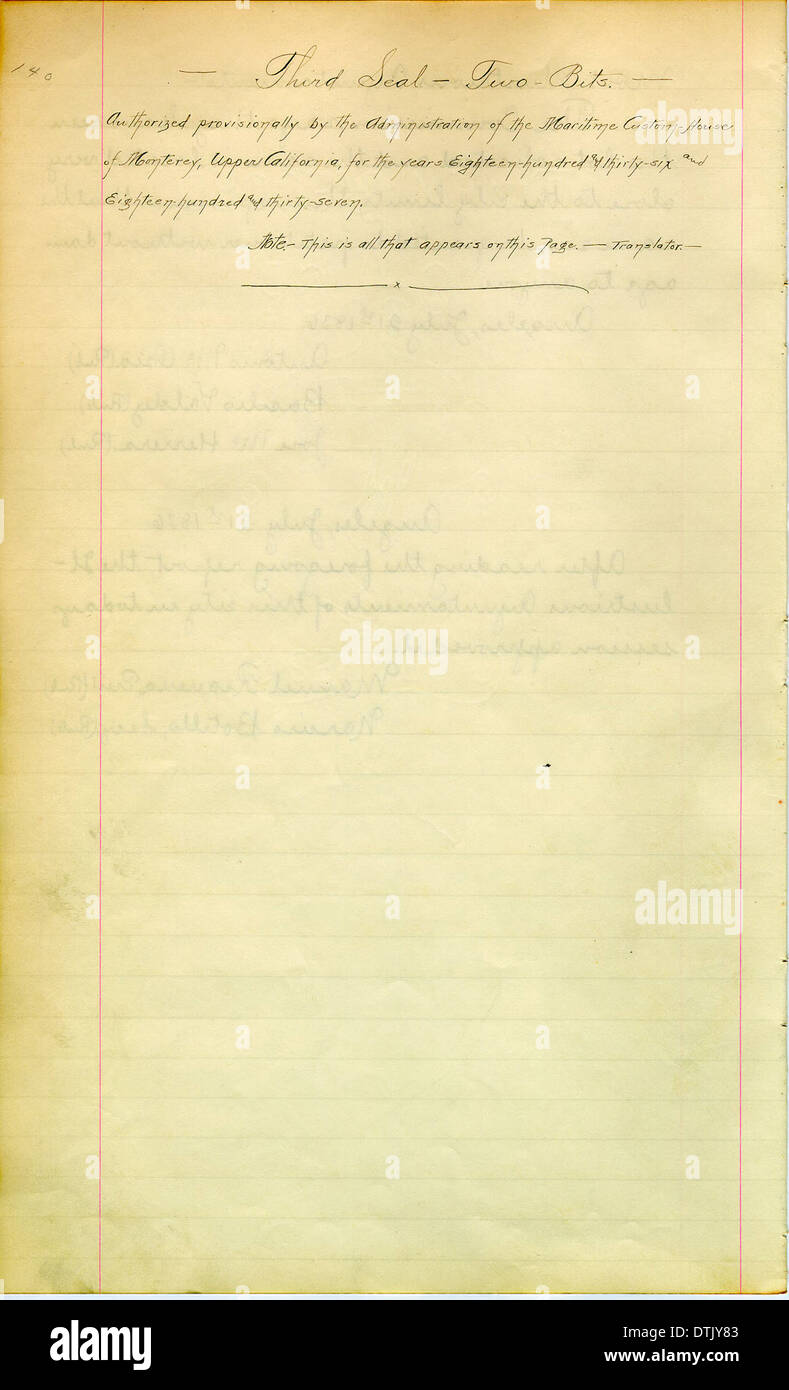 140
— Third Seal — Two-Bits. —
Authorized provisionally by the Administration of the Maritime Custom-House
of Monterey, Upper California, for the years Eighteen-hundred and thirty-six and
Eighteen-hundred and thirty-seven.
Note.- This is all that appears on this Page. — Translator. —
x
a alamy
alamy
a
alamy
www.alamy.com
Image ID: DTJY83